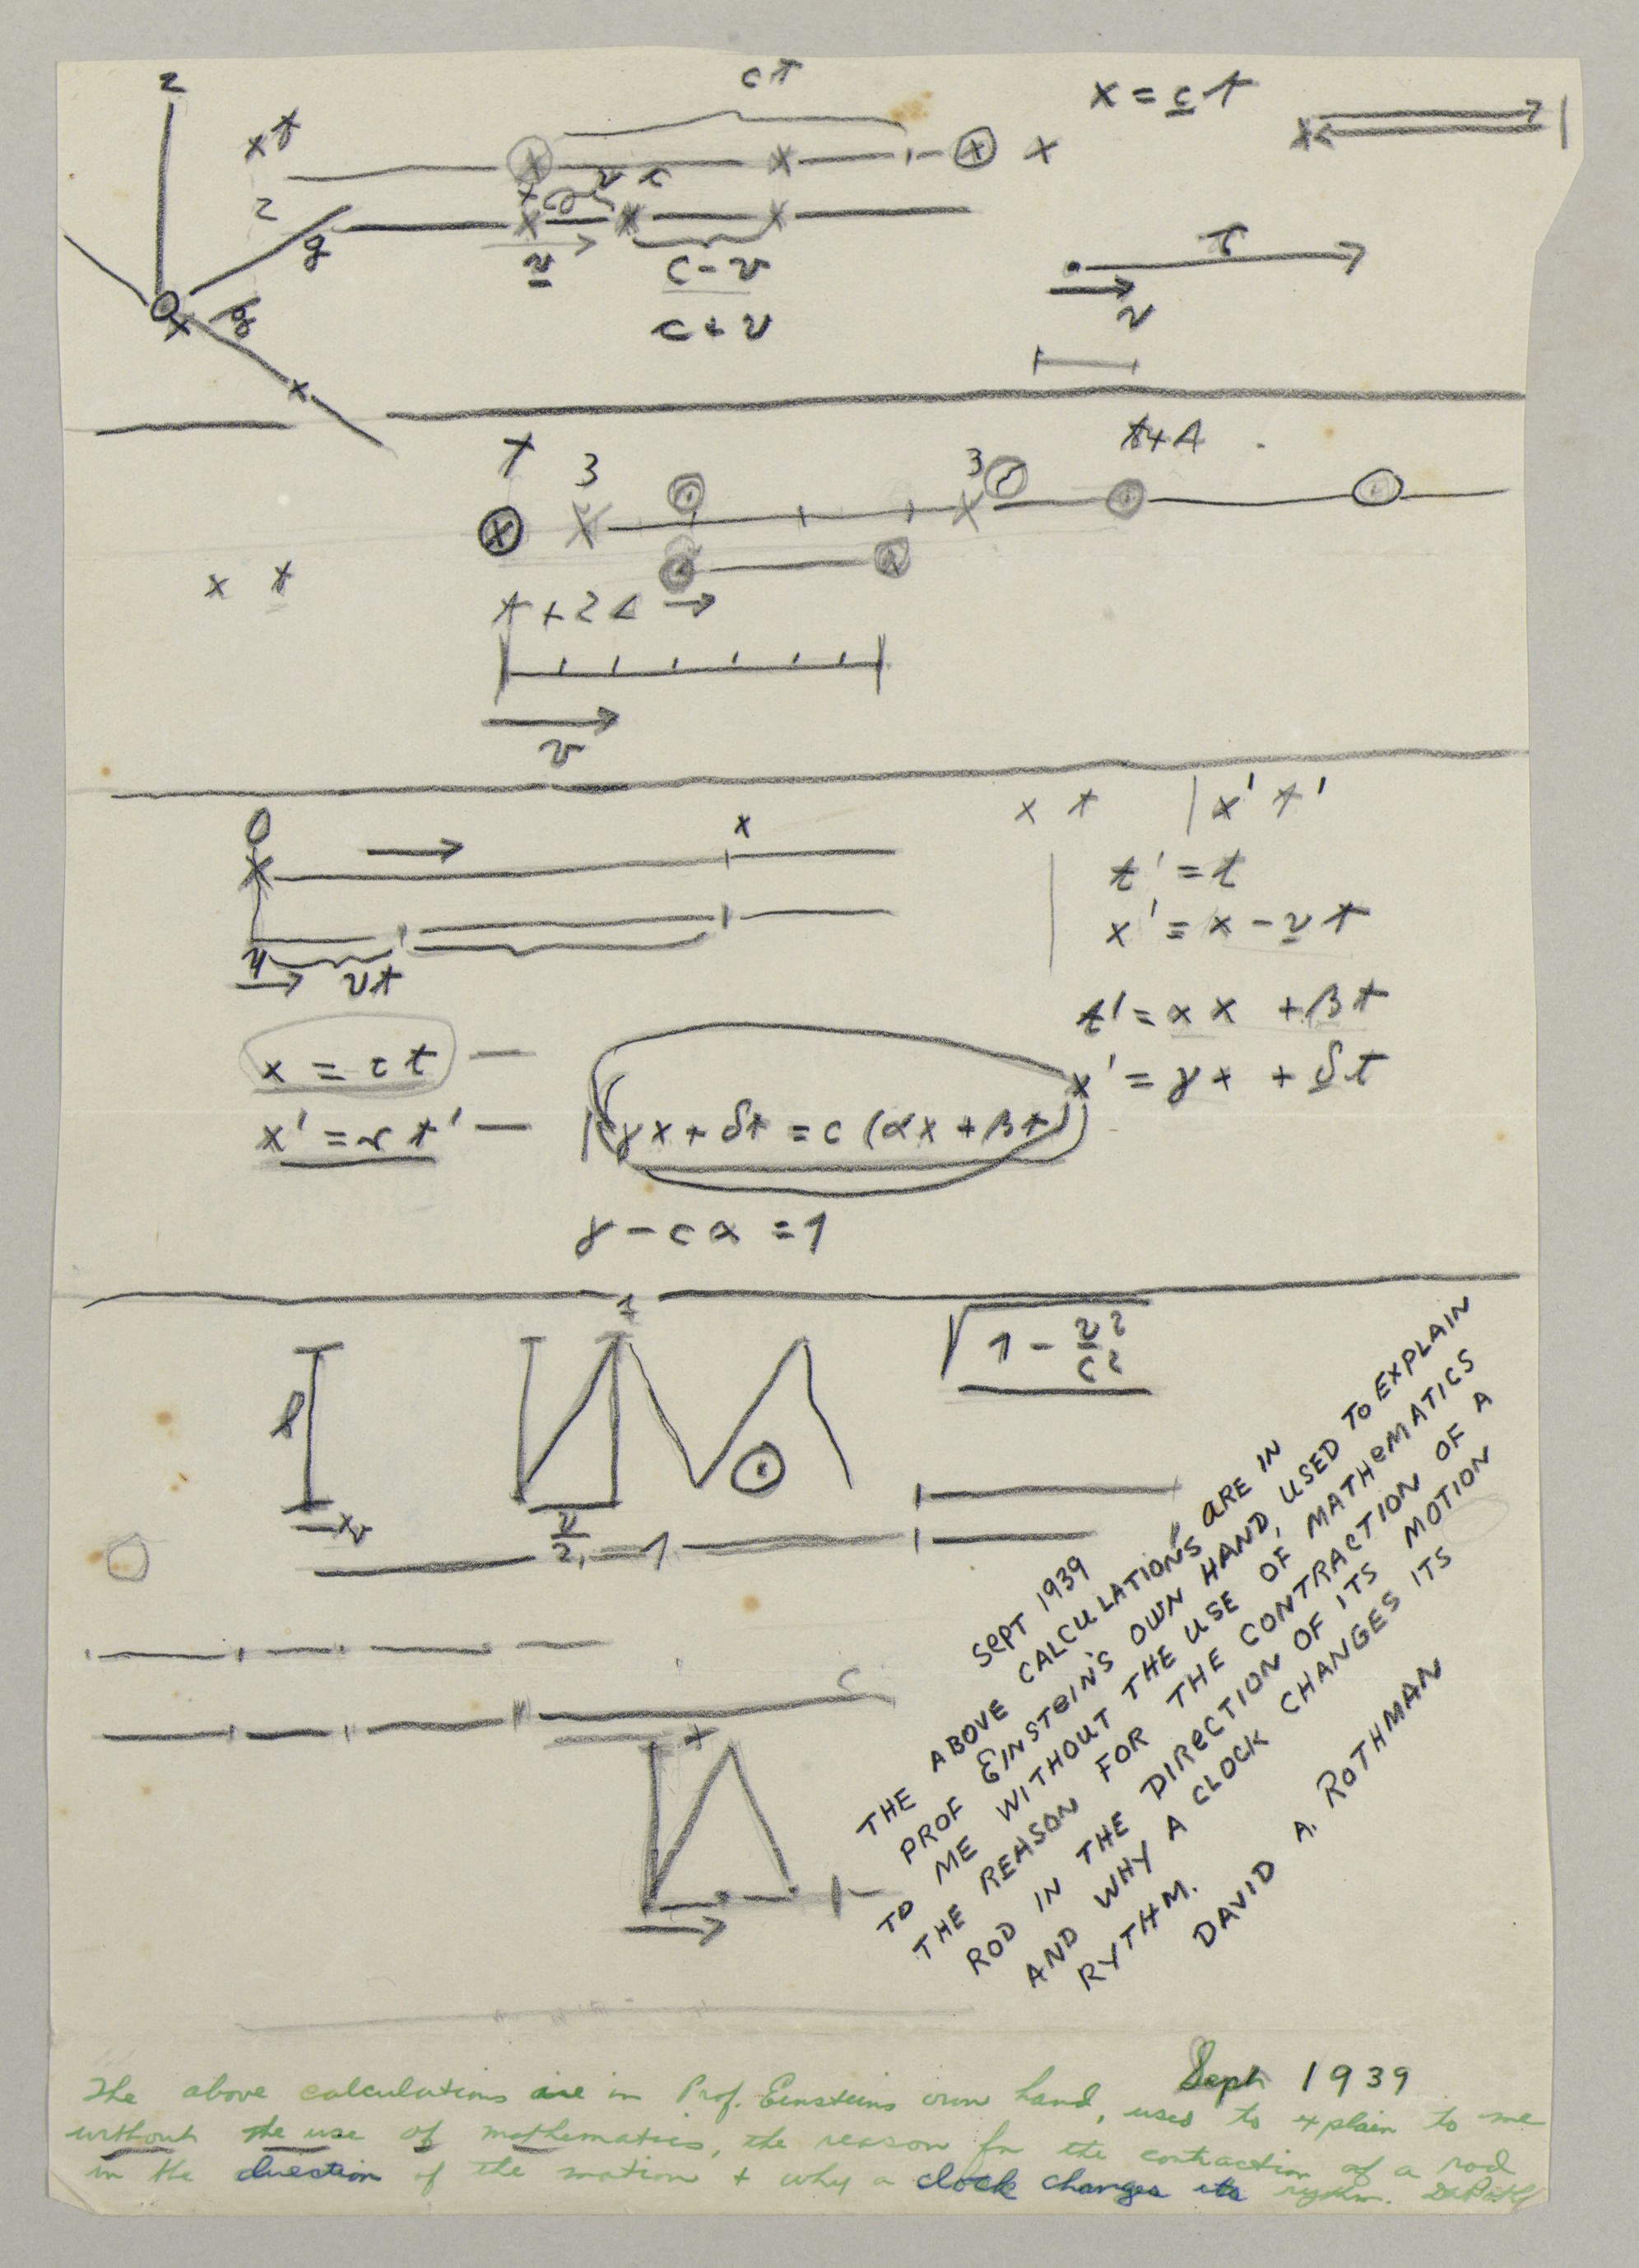 z
x t
cτ
x = c t
x
z
y
v
c - v
c + v
v
3
3
t + Δ
x t
t + 2Δ →
v
x t | x' t'
0
x
t' = t
x' = x - v t
v t
t' = α x + β t
x = c t
x' = γ x + δ t
x' = c t'
γ x + δ t = c (α x + β t)
γ - c α = 1
√1 - v²/c²
l
v
SEPT 1939
THE ABOVE CALCULATIONS ARE IN
PROF EINSTEIN'S OWN HAND, USED TO EXPLAIN
TO ME WITHOUT THE USE OF MATHEMATICS
THE REASON FOR THE CONTRACTION OF A
ROD IN THE DIRECTION OF ITS MOTION
AND WHY A CLOCK CHANGES ITS
RYTHM.
DAVID A. ROTHMAN
Sept 1939
The above calculations are in Prof. Einsteins own hand, used to explain to me
without the use of mathematics, the reason for the contraction of a rod
in the direction of the motion + why a clock changes its rythm.